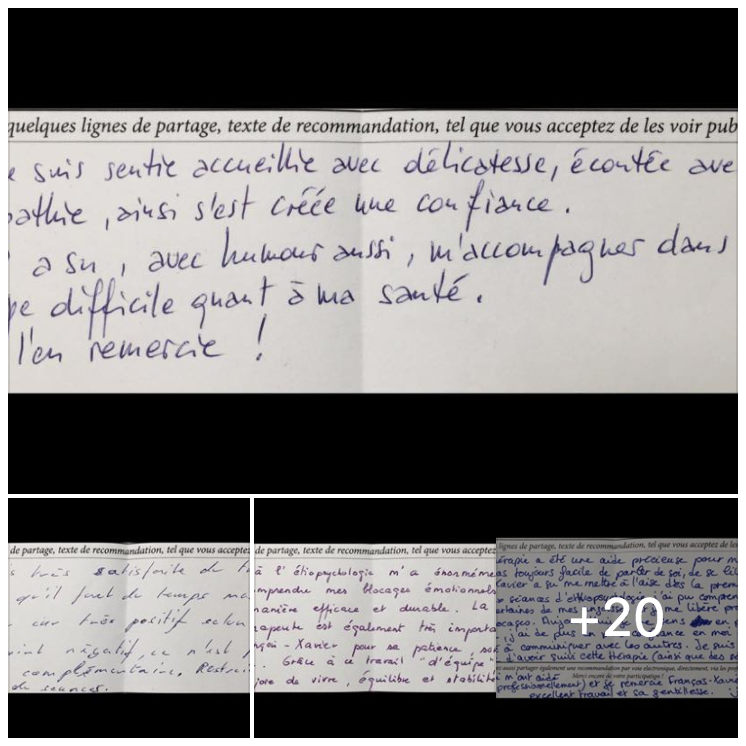 quelques lignes de partage, texte de recommandation, tel que vous acceptez de les voir pub
e suis sentie accueillie avec délicatesse, écoutée ave
pathie, ainsi s'est créée une confiance.
a su, avec humour aussi, m'accompagner dans
pe difficile quant à ma santé.
l'en remercie !
de partage, texte de recommandation, tel que vous acceptez
s très satisfaite du
qu'il faut du temps
car très positif selon
point négatif, ce n'est
complémentaire.
de séances.
de partage, texte de recommandation, tel que vous acceptez
à l'étiopsychologie m'a énormémen
mprendre mes blocages émotionnels
manière efficace et durable. La
rapeute est également très importa
nçois-Xavier pour sa patience, so
Grâce à ce travail "d'équipe"
joie de vivre, équilibre et stabilité
lignes de partage, texte de recommandation, tel que vous acceptez de les
érapie a été une aide précieuse pour m
as toujours facile de parler de soi, de se
Xavier a su me mettre à l'aise dès la prem
séances d'éthiopsychologie j'ai pu compren
rtaines de mes me libère
cages.
+20
j'ai de plus en confiance en moi
à communiquer avec les autres. Je suis
d'avoir suivi cette thérapie (ainsi que des
aussi partager également une recommandation par voie électronique, directement, via
Merci encore de votre participation !
m'ont aidé
professionnellement) et je remercie François-Xavi
excellent travail et sa gentillesse.